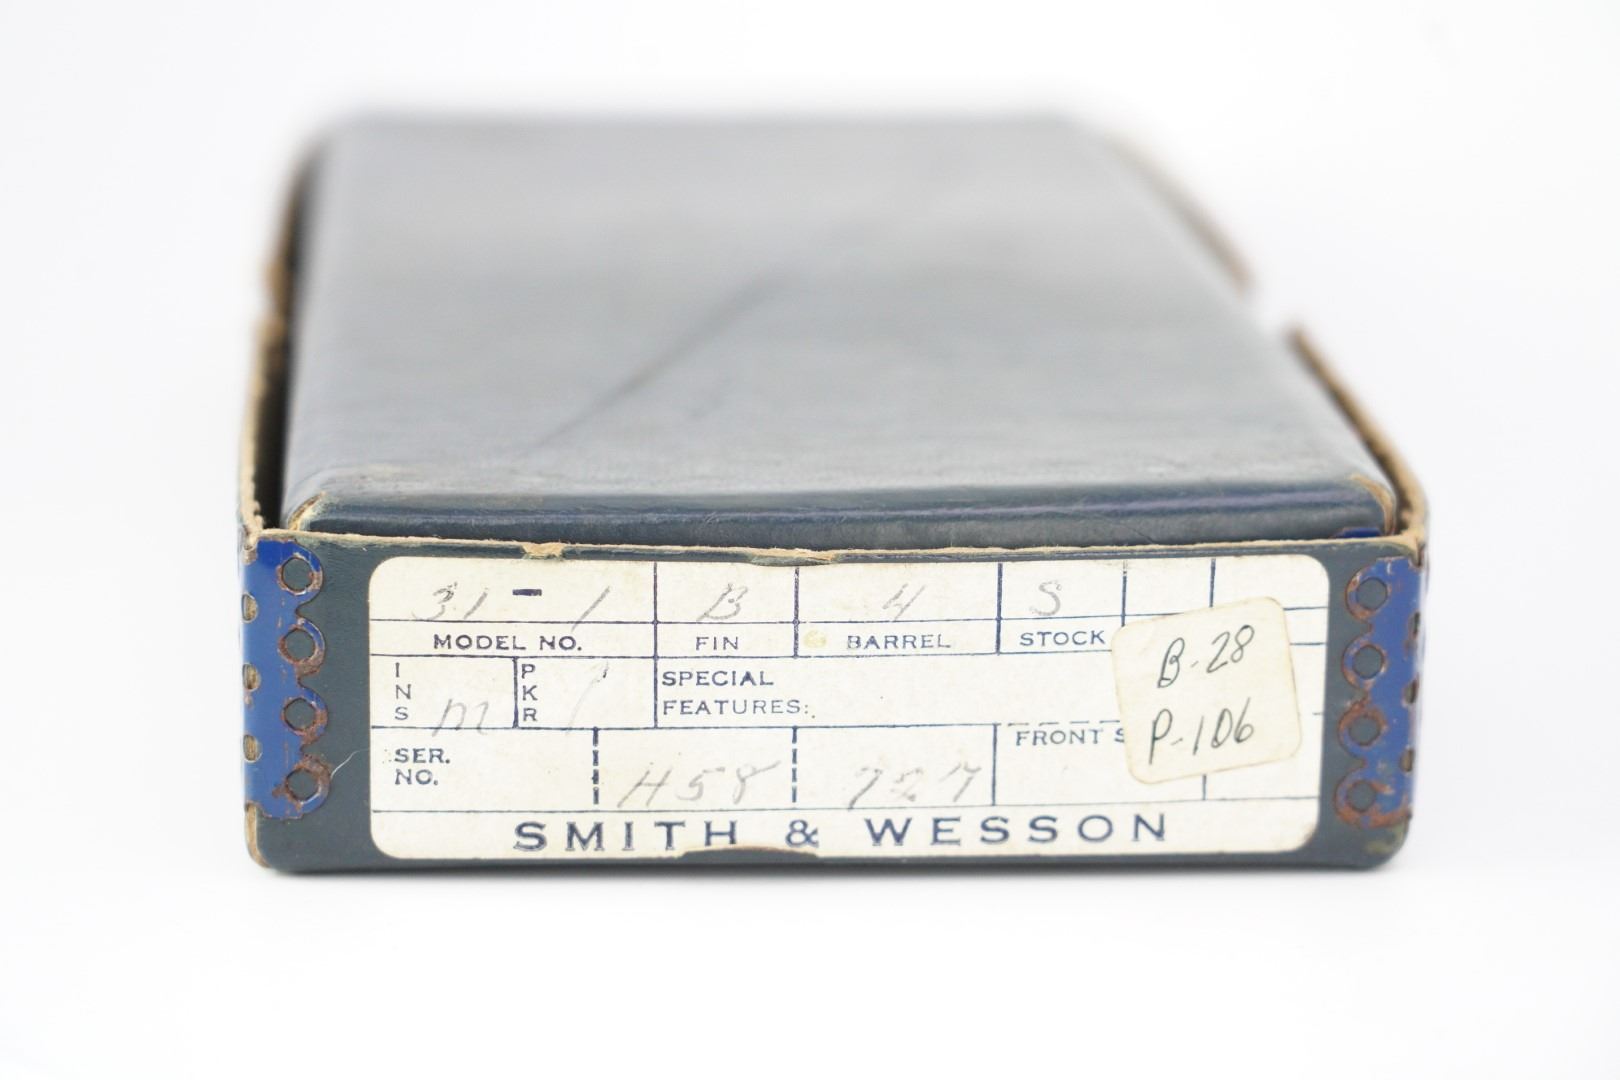 31-1 B 4 S
MODEL NO. FIN BARREL STOCK
INS m PKR SPECIAL
FEATURES:
B-28
P-106
SER.
NO. H58 727
FRONT S
SMITH & WESSON